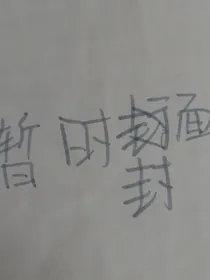 暂时面
封